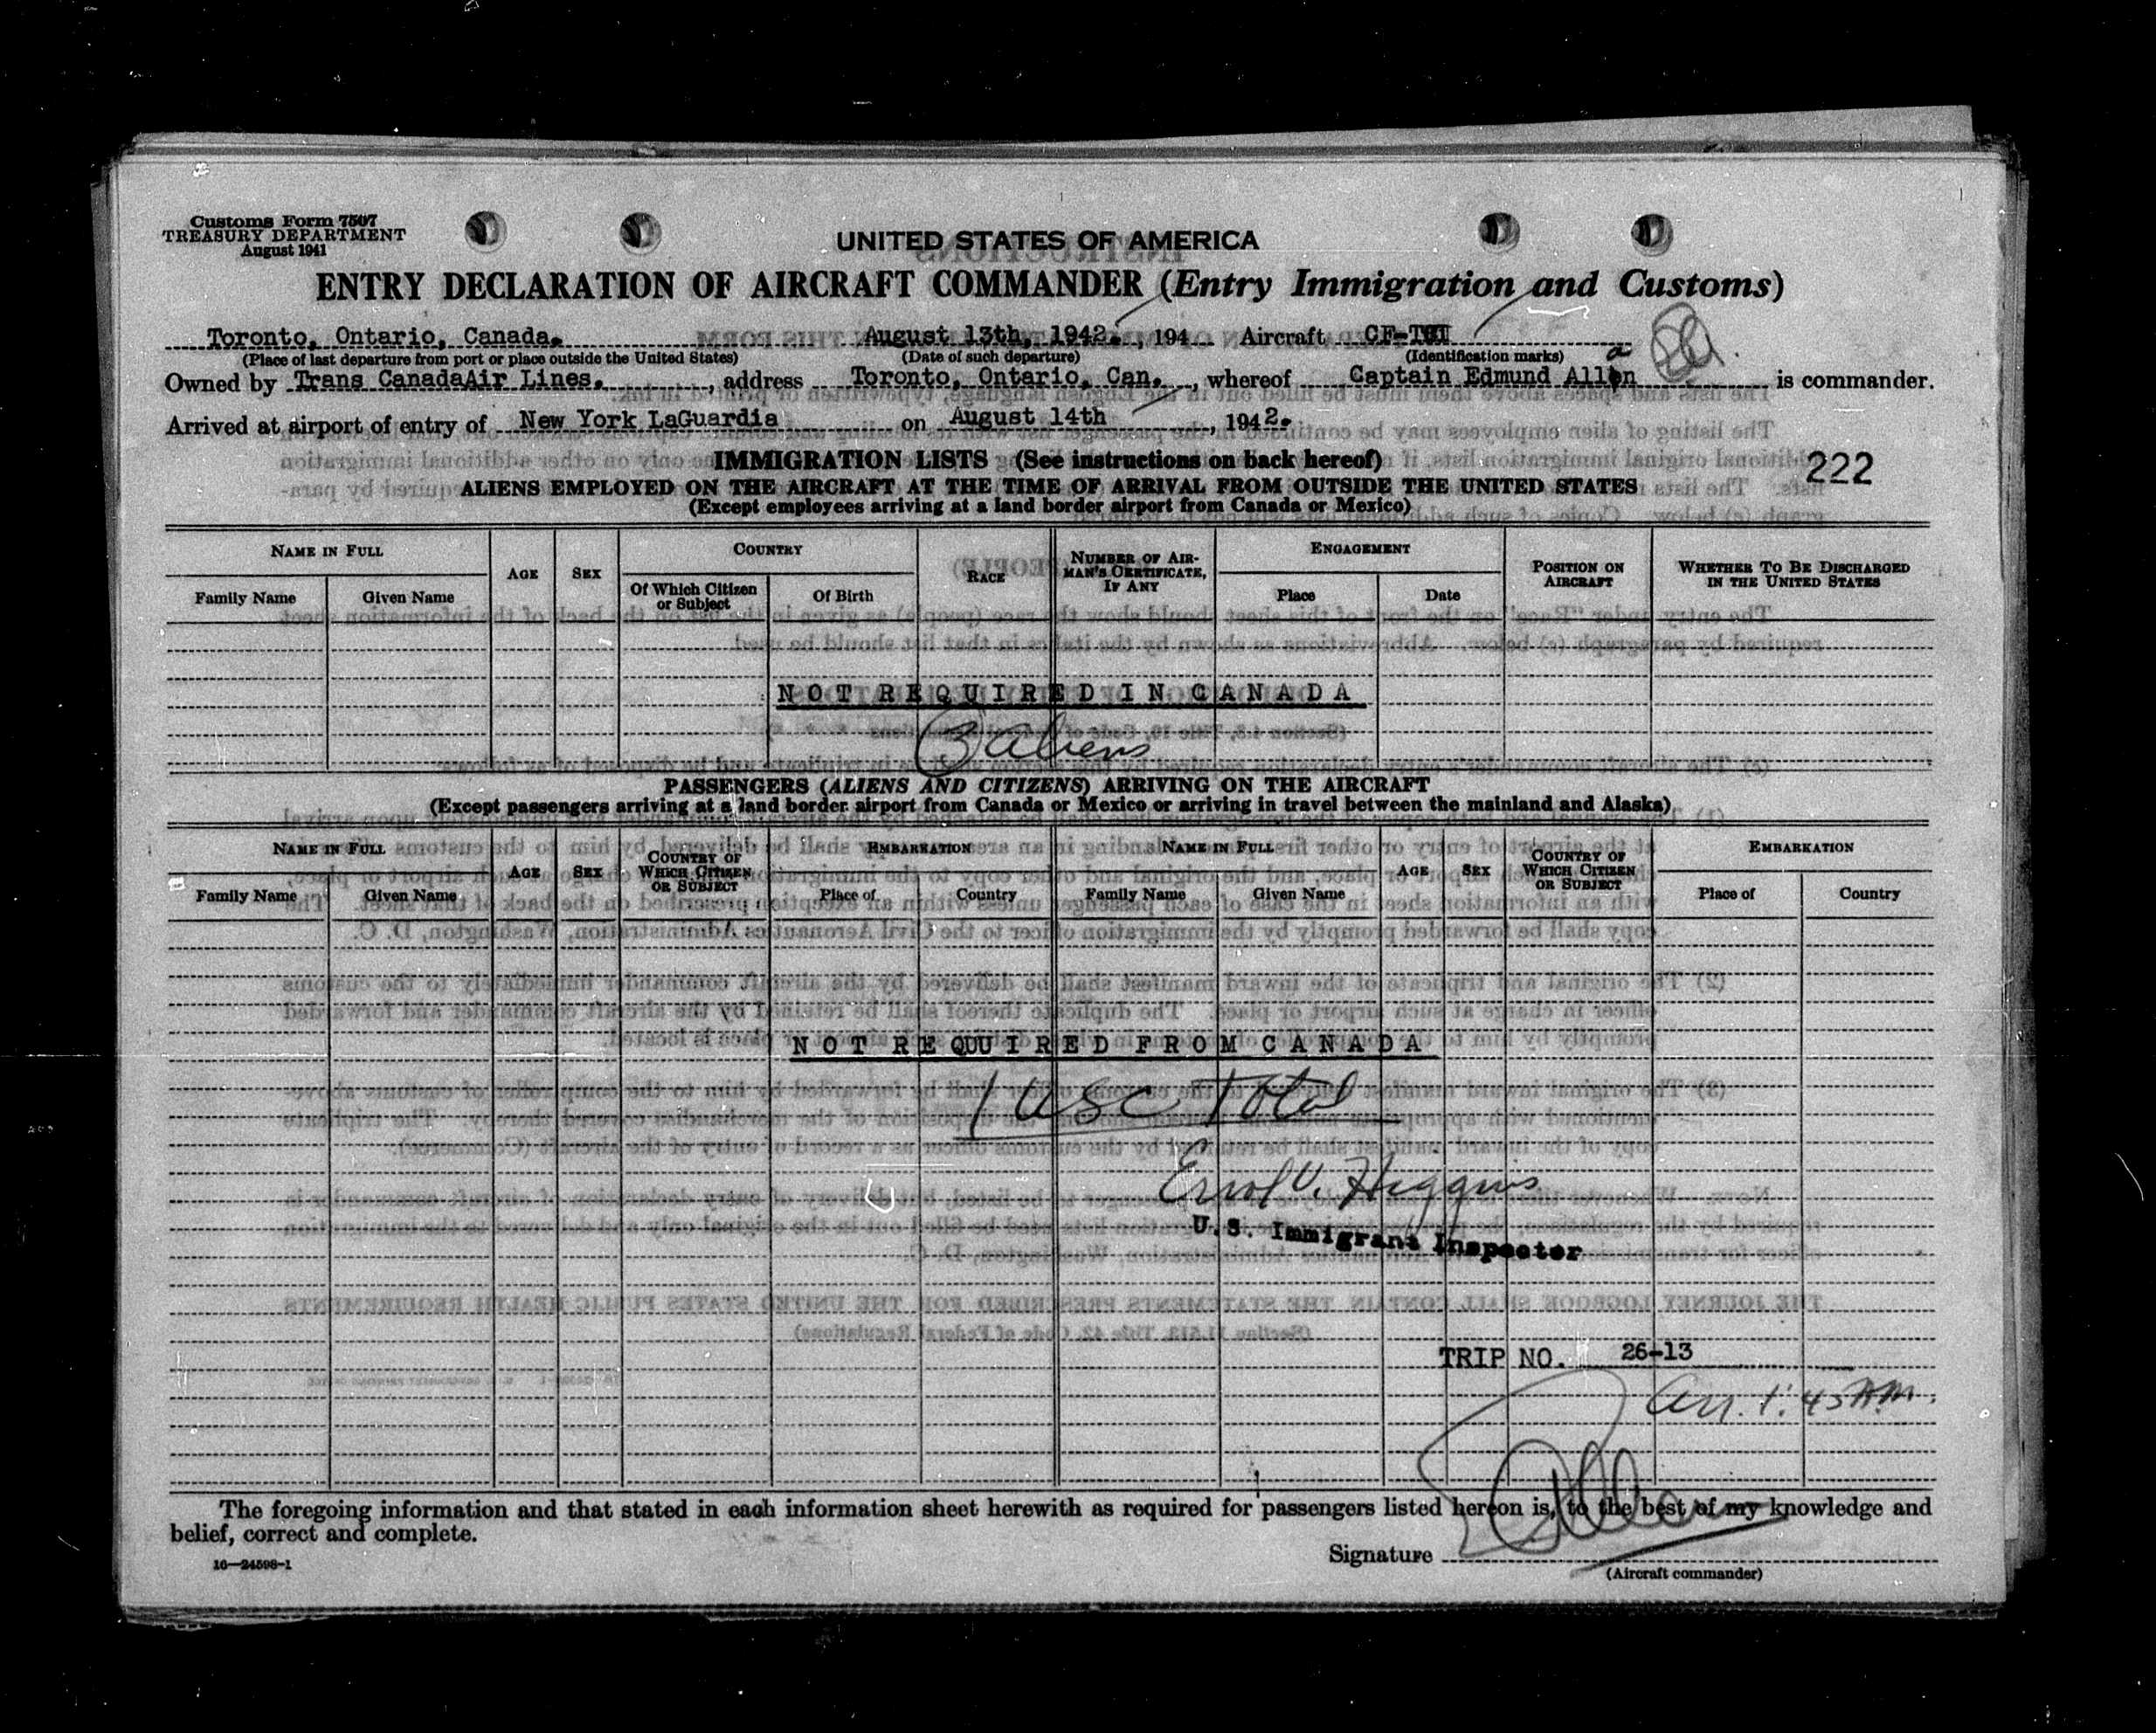 Customs Form 7507
TREASURY DEPARTMENT
August 1941
UNITED STATES OF AMERICA
ENTRY DECLARATION OF AIRCRAFT COMMANDER (Entry Immigration and Customs)
Toronto, Ontario, Canada. August 13th, 1942. , 194 Aircraft CF-
(Place of last departure from port or place outside the United States) (Date of such departure) (Identification marks)
Owned by Trans CanadaAir Lines. , address Toronto, Ontario, Can. , whereof Captain Edmund Allan is commander.
Arrived at airport of entry of New York LaGuardia on August 14th , 1942.
IMMIGRATION LISTS (See instructions on back hereof)
222
ALIENS EMPLOYED ON THE AIRCRAFT AT THE TIME OF ARRIVAL FROM OUTSIDE THE UNITED STATES
(Except employees arriving at a land border airport from Canada or Mexico)
NAME IN FULL AGE SEX COUNTRY RACE NUMBER OF AIRMAN'S CERTIFICATE, IF ANY ENGAGEMENT POSITION ON AIRCRAFT WHETHER TO BE DISCHARGED IN THE UNITED STATES
Family Name Given Name Of Which Citizen or Subject Of Birth Place Date
NOT REQUIRED IN CANADA
3 aliens
PASSENGERS (ALIENS AND CITIZENS) ARRIVING ON THE AIRCRAFT
(Except passengers arriving at a land border airport from Canada or Mexico or arriving in travel between the mainland and Alaska)
NAME IN FULL AGE SEX COUNTRY OF WHICH CITIZEN OR SUBJECT EMBARKATION NAME IN FULL AGE SEX COUNTRY OF WHICH CITIZEN OR SUBJECT EMBARKATION
Family Name Given Name Place of Country Family Name Given Name Place of Country
NOT REQUUIRED FROM CANADA
1 USC Total
Errol V. Higgins
U.S. Immigrant Inspector
TRIP NO. 26-13
arr. 1:45 AM.
The foregoing information and that stated in each information sheet herewith as required for passengers listed hereon is, to the best of my knowledge and
belief, correct and complete.
16—24598-1
Signature
(Aircraft commander)